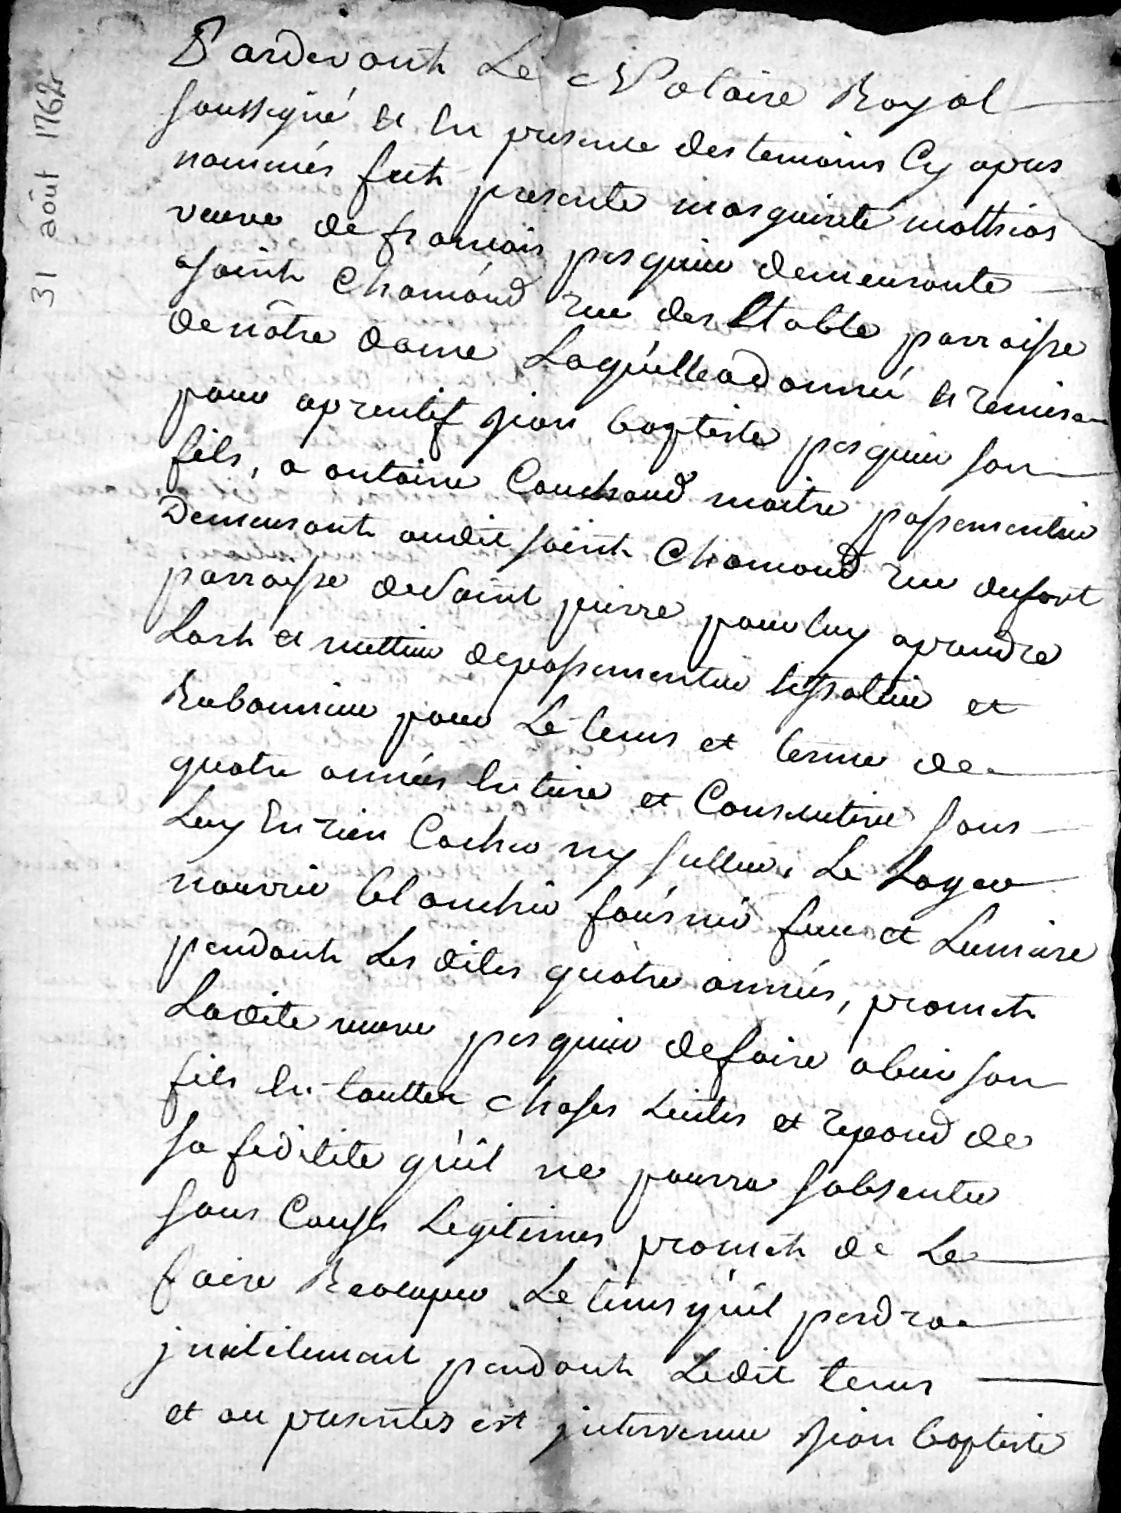 31 août 1764
Pardevant Le Notaire Royal
soussigné et En presence des temoins Cy apres
nommés fut presente marguerite mathias
veuve de francois pasquier demeurante
a saint Chamond rue des Etable parroisse
de nôtre dame Laquelle a donné et remis
pour aprentif jean baptiste pasquier son
fils, a antoine Couchoud maitre passementier
Demeurant audit saint Chamond rue du fort
parroisse de saint pierre pour luy aprendre
Lart et mettier de passementier tissotier et
Rubannier pour Le tems et terme de
quatre années Entiere et Consecutive sans
Luy En rien Cacher ny seller, Le Loger
nourrir blanchir fournir feu et Lumiere
pendant Les dites quatre années, promet
Ladite veuve pasquier de faire obeir son
fils En touttes choses licites et repond de
sa fidelité qu'il ne pourra sabsenter
sans Causes Legitimes promet de Le
faire Recouper Le tems qu'il perdra
jnutilement pendant Ledit tems
et au presentes est jntervenue jean baptiste